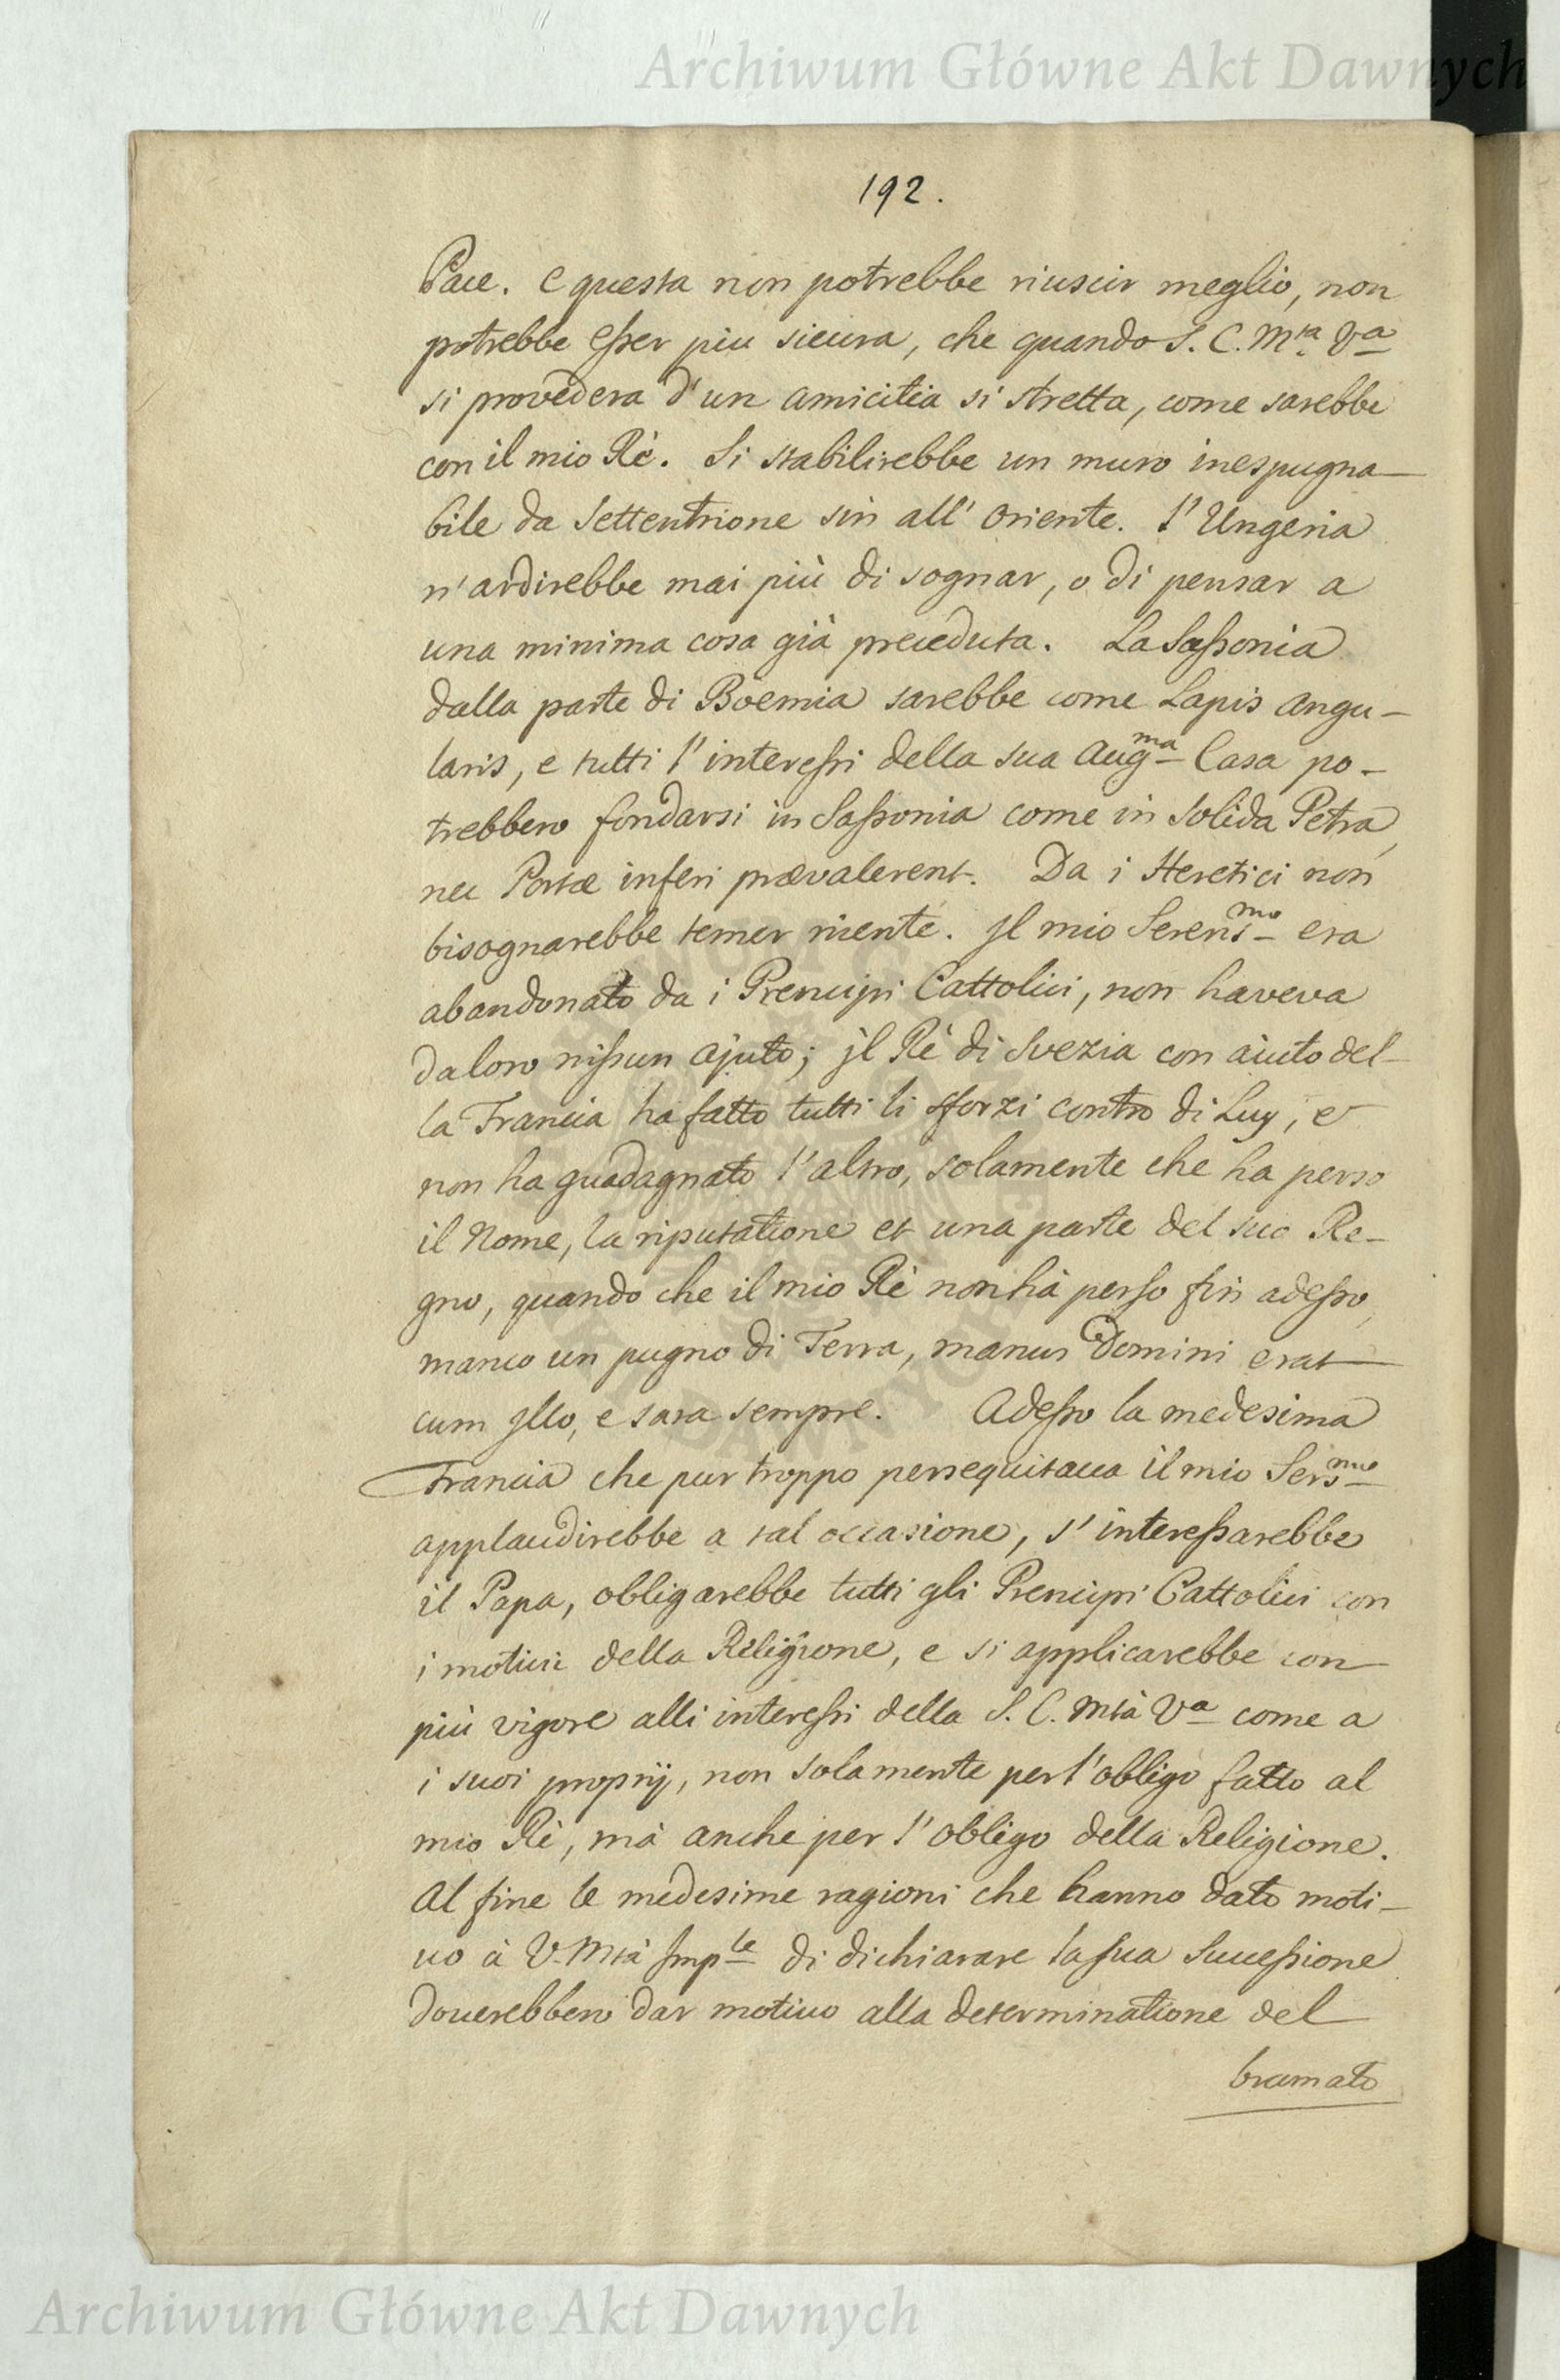 Archiwum Główne Akt Dawnych
192.
Pace. e questa non potrebbe riuscir meglio, non
potrebbe esser piu sicura, che quando S. C. Mta. Va
si provedera d'un amicitia si stretta, come sarebbe
con il mio Rè. Si stabilirebbe un muro inespugna-
bile da Settentrione sin all' Oriente. l'Ungeria
n'ardirebbe mai più di sognar, o di pensar a
una minima cosa già preceduta. La Sassonia
dalla parte di Boemia sarebbe come Lapis angu-
laris, e tutti l'interessi della sua Augma Casa po-
trebbero fondarsi in Sassonia come in solida Petra,
nec Portæ inferi prævalerent. Da i Heretici non
bisognarebbe temer niente. Jl mio Serensmo era
abandonato da i Prencipi Cattolici, non haveva
da loro nissun ajuto; jl Rè di Svezia con aiuto del-
la Francia ha fatto tutti li sforzi contro di Luy, e
non ha guadagnato l'altro, solamente che ha perso
il Nome, la riputatione et una parte del suo Re-
gno, quando che il mio Rè non hà perso fin adesso,
manco un pugno di Terra, manus Domini erat
cum jllo, e sara sempre. Adesso la medesima
Francia che pur troppo persequitaua il mio Sersmo
applaudirebbe a tal occasione, s'interessarebbe
il Papa, obligarebbe tutti gli Prencipi Cattolici con
i motiui della Religione, e si applicarebbe con
più vigore alli interessi della S. C. Mtà Va come a
i suoi proprij, non solamente per l'obligo fatto al
mio Rè, mà anche per l'obligo della Religione.
Al fine le medesime ragioni che hanno dato moti-
uo à V. Mtà Imple di dichiarare la sua Successione
douerebbero dar motiuo alla determinatione del
bramato
Archiwum Główne Akt Dawnych